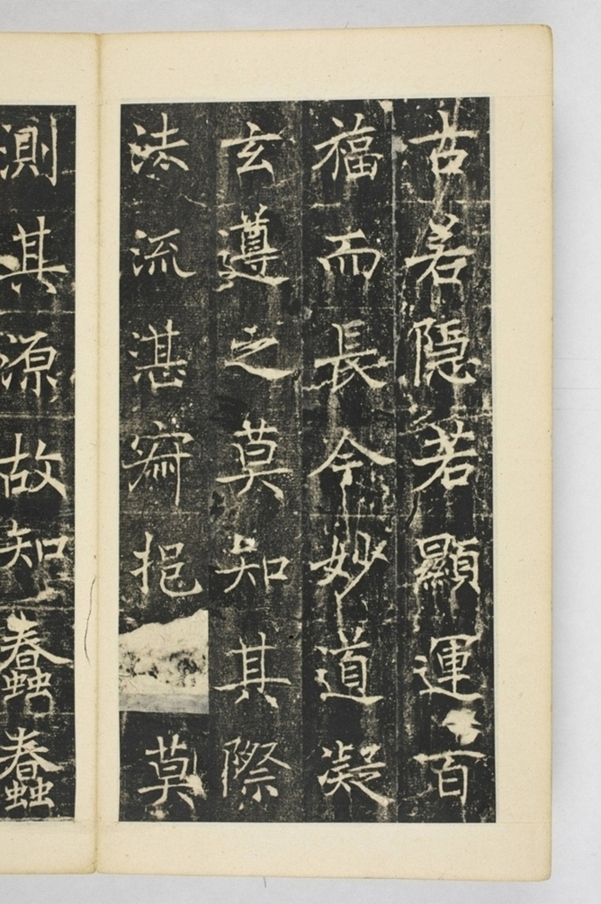 古若隱若顯運百
福而長今妙道凝
玄遵之莫知其際
法流湛寂挹莫
測其源故知蠢蠢